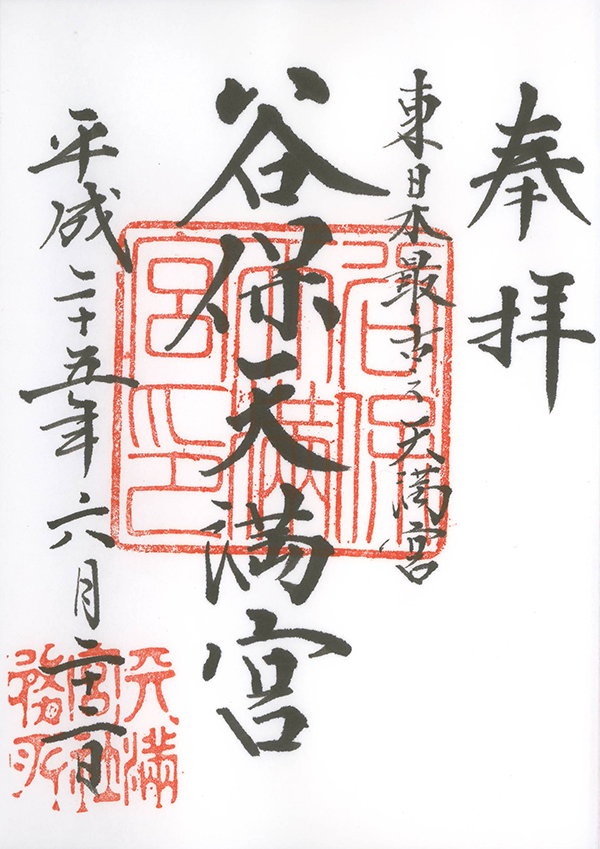 奉拝
東日本最古之天満宮
谷保天満宮
平成二十五年六月二十二日
谷保天満宮印
天満宮社務所